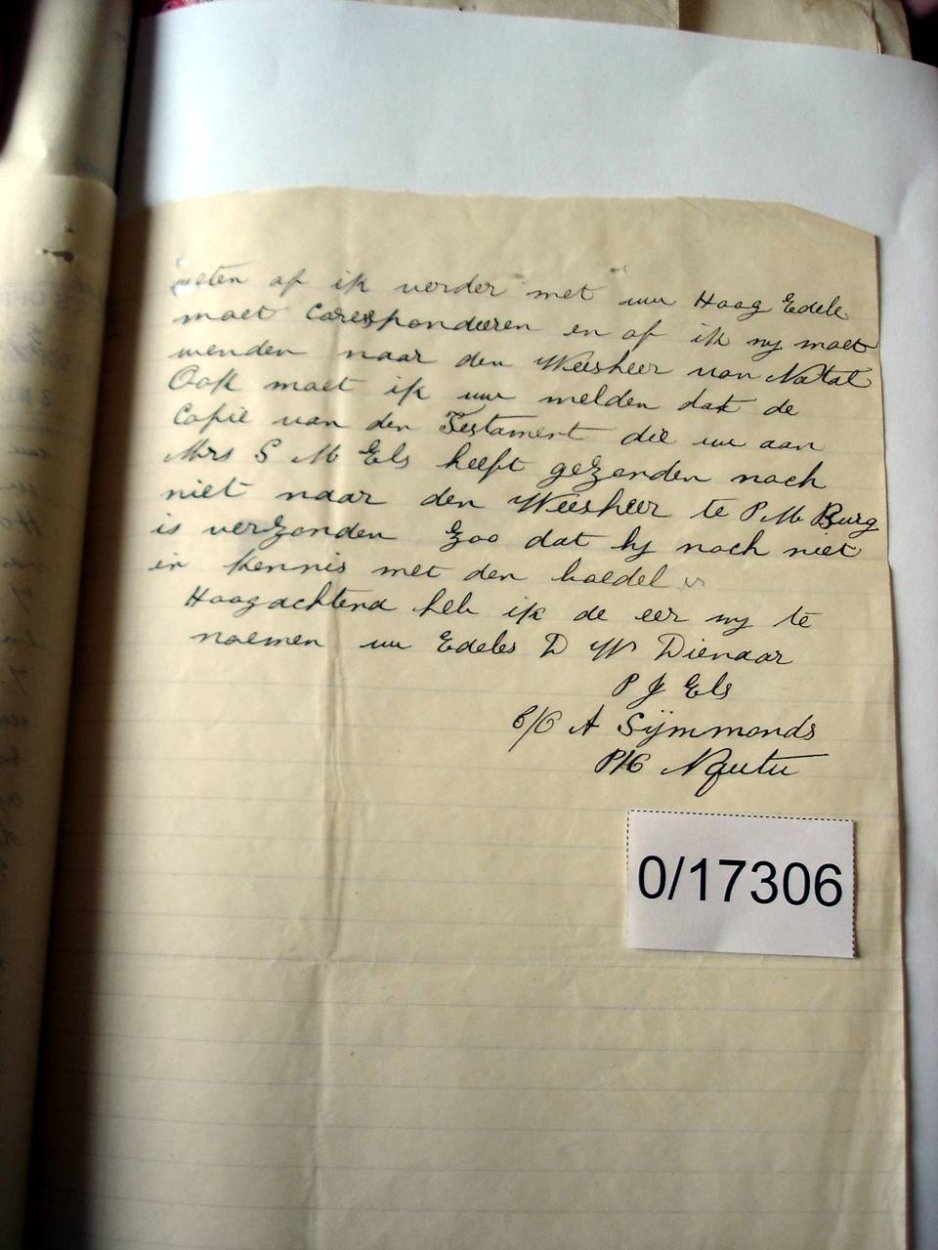 weten of ik verder met uw Hoog Edele
moet Coresponderen en of ik mij moet
wenden naar den Weesheer van Natal
Ook moet ik uw melden dat de
Copie van den Testament die uw aan
Mrs S M Els heeft gezonden noch
niet naar den Weesheer te P M Burg
is verzonden Zoo dat hij noch niet
in kennis met den boedel is
Hoogachtend heb ik de eer mij te
noemen uw Edeles D W Dienaar
P J Els
C/O A Sijmmonds
P/O Nqutu
0/17306